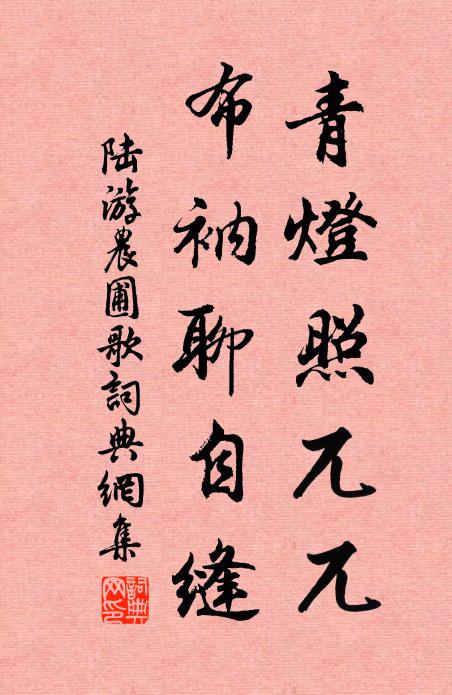 青燈照兀兀
布衲聊自縫
陸游農圃歌詞典網集
詞典網印